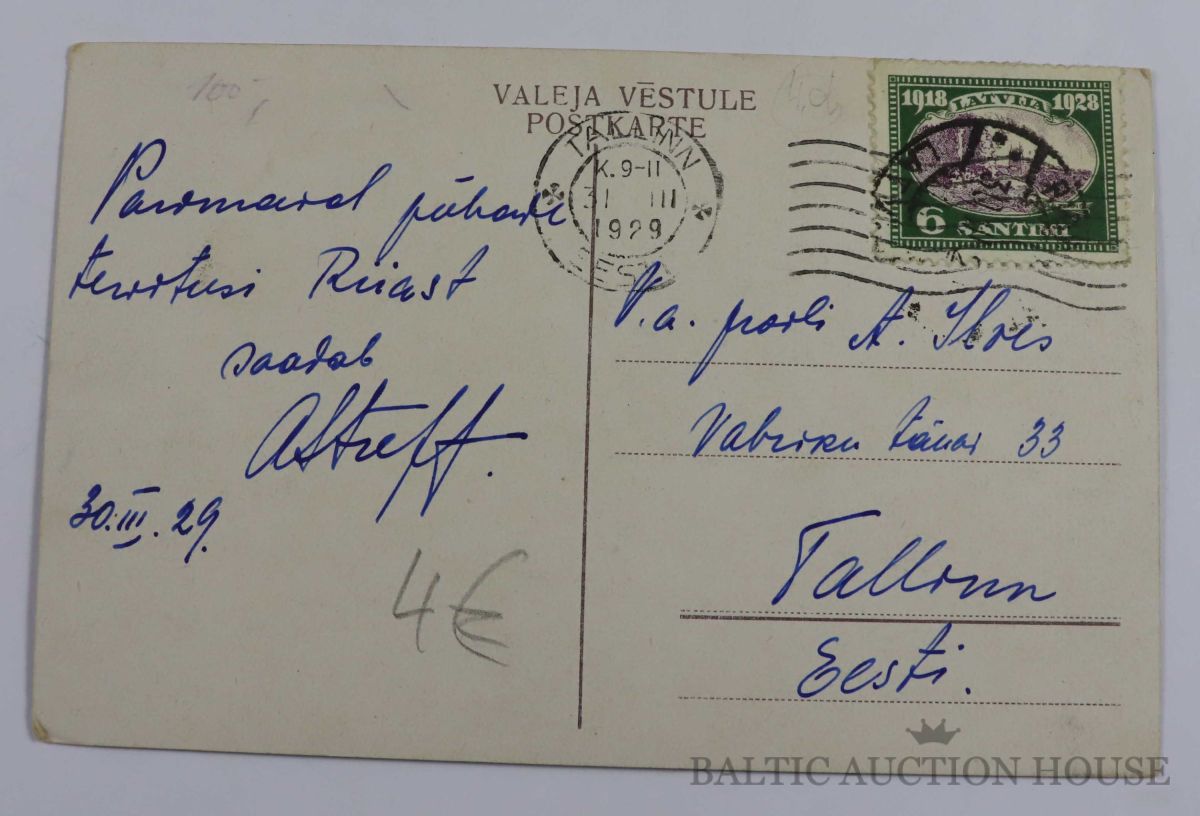 VALEJA VĒSTULE
POSTKARTE
1918 LATVIJA 1928
6 SANTIMI
TALLINN
K. 9-11
31 III
1929
EESTI
Paremaid pühade
tervitusi Riiast
saadab
AStreff.
30.III.29.
4€
V.a. prouli A. Ilves
Vabriku tänav 33
Tallinn
Eesti.
BALTIC AUCTION HOUSE